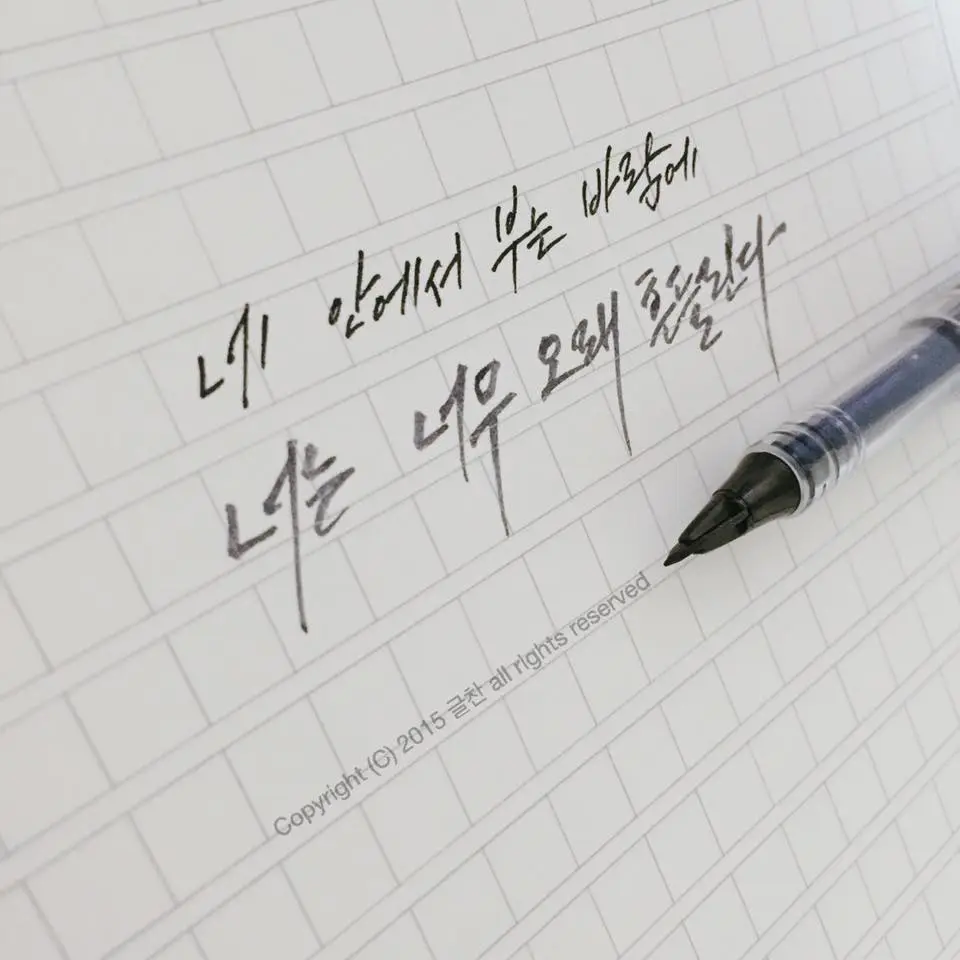 네 안에서 부는 바람에
너는 너무 오래 흔들린다
Copyright (C) 2015 글찬 all rights reserved